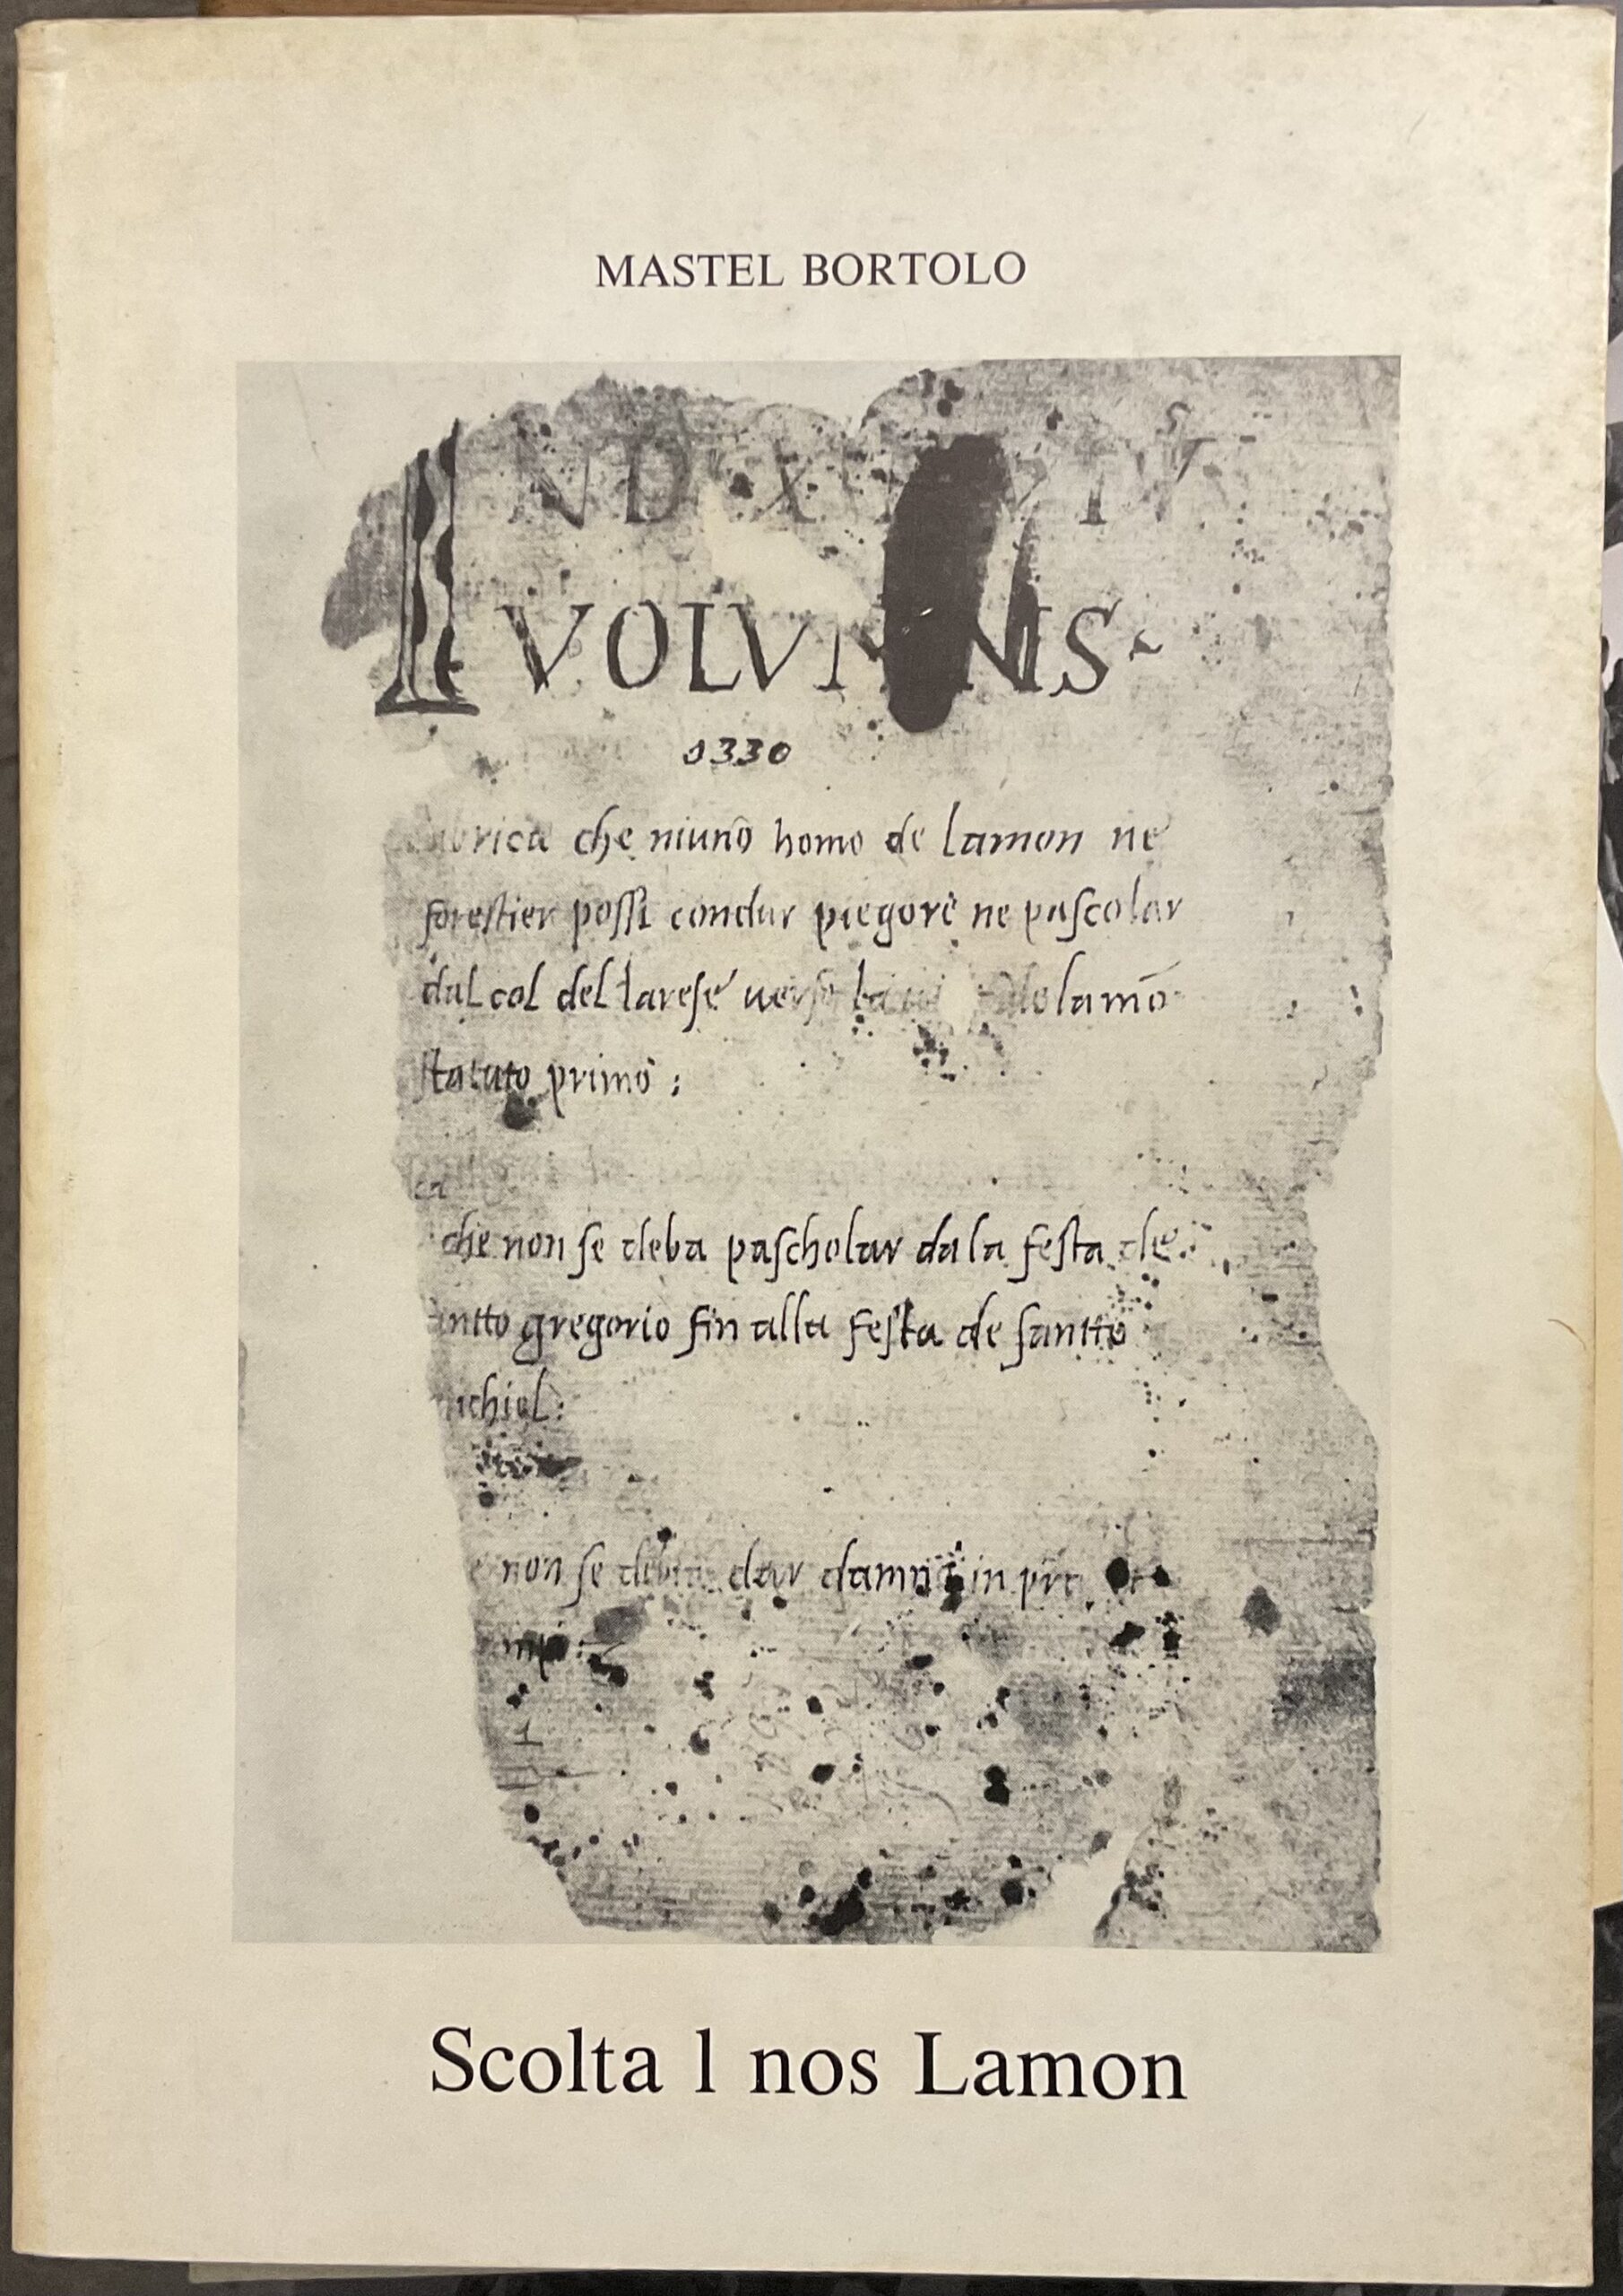 MASTEL BORTOLO
IND
VOLVM NIS
1330
che niuno homo de lamon ne
forestier possi condur piegore ne pascolar
dal col del larese verso lamō
statuto primo :
ca
che non se deba pascholar da la festa de
gregorio fin alla festa de santto
ichiel :
non se deba dar damni in pra
1
Scolta l nos Lamon